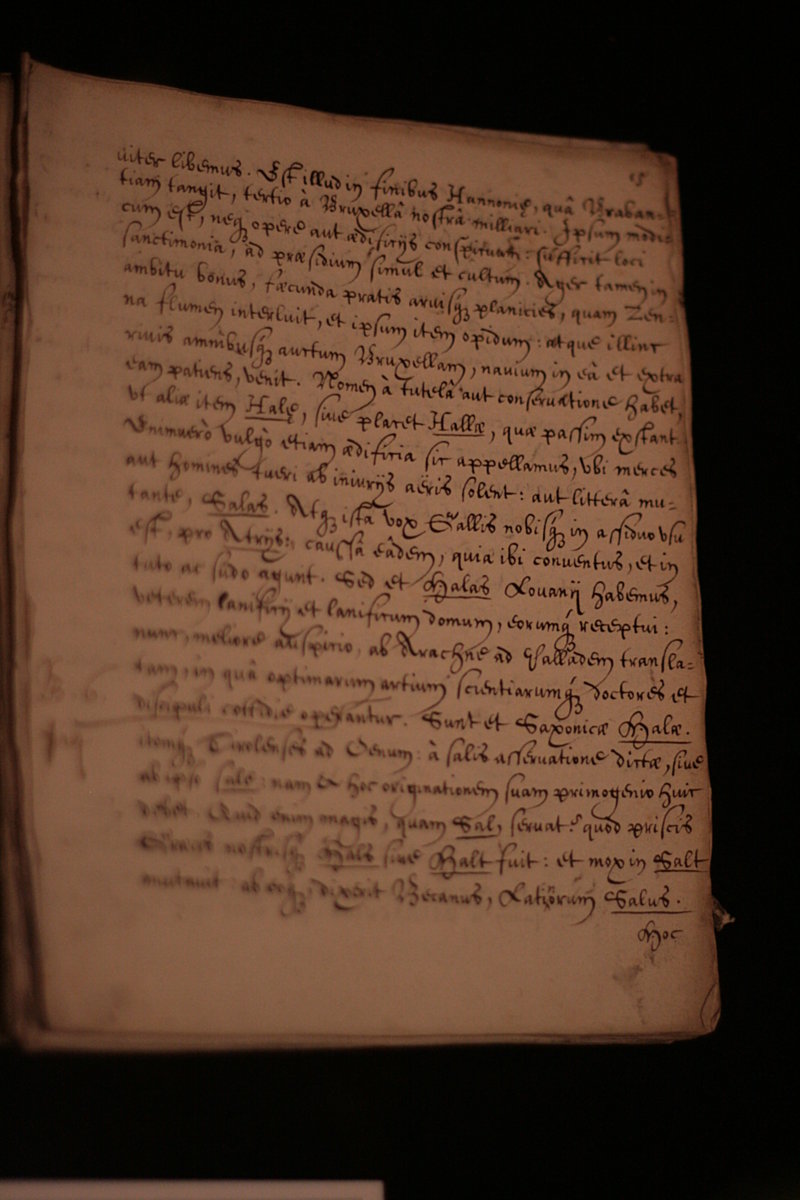 15
uiter libemus. Est illud in finibus Hannoniæ, quâ Braban-
tiam tangit, tertio à Bruxellâ nostrâ milliari. Ipsum modi-
cum est, neq; opere aut ædificijs conspicuum: sufficit loci
sanctimonia, ad præsidium simul et cultum. Ager tamen in
ambitu bonus, fæcunda pratis arvisq; planicies, quam Zen-
na flumen interluit, et ipsum item opidum: atque illinc
rivis amnibusq; auctum Bruxellam, navium in eâ et extra
eam patiens, venit. Nomen à tutelâ aut conservatione habet,
vt aliæ item Hale, sive placet Hallæ, quæ passim exstant.
Enimuerò vulgò etiam ædificia sic appellamus, vbi merces
aut homines tueri ab iniurijs aëris solent: aut litterâ mu-
tante, Salas. Atq; ista vox Gallis nobisq; in assiduo vsu
est, pro Atrijs: caussâ eâdem, quia ibi conventus, et in
tuto ac sudo agunt. Sed et Halas Louanij habemus,
veterem lanificij et lanificum domum, eorumq́; receptui:
nunc, meliore auspicio, ab Arachne ad Palladem transla-
tam, in quâ optimarum artium scientiarumq́; doctores et
discipuli cottidie operantur. Sunt et Saxonicæ Halæ.
itemq; Tirolenses ad Oenum: à salis asservatione dictæ, sive
ab ipso sale: nam & hoc originationem suam primogenio huic
debet. Quid enim magis, quam Sal, servat? quod priscis
Græcis nostrisq; Hals sive Halt fuit: et mox in Salt
mutauit: ab eoq;, dixerit Becanus, Latinorum Salus.
Hoc